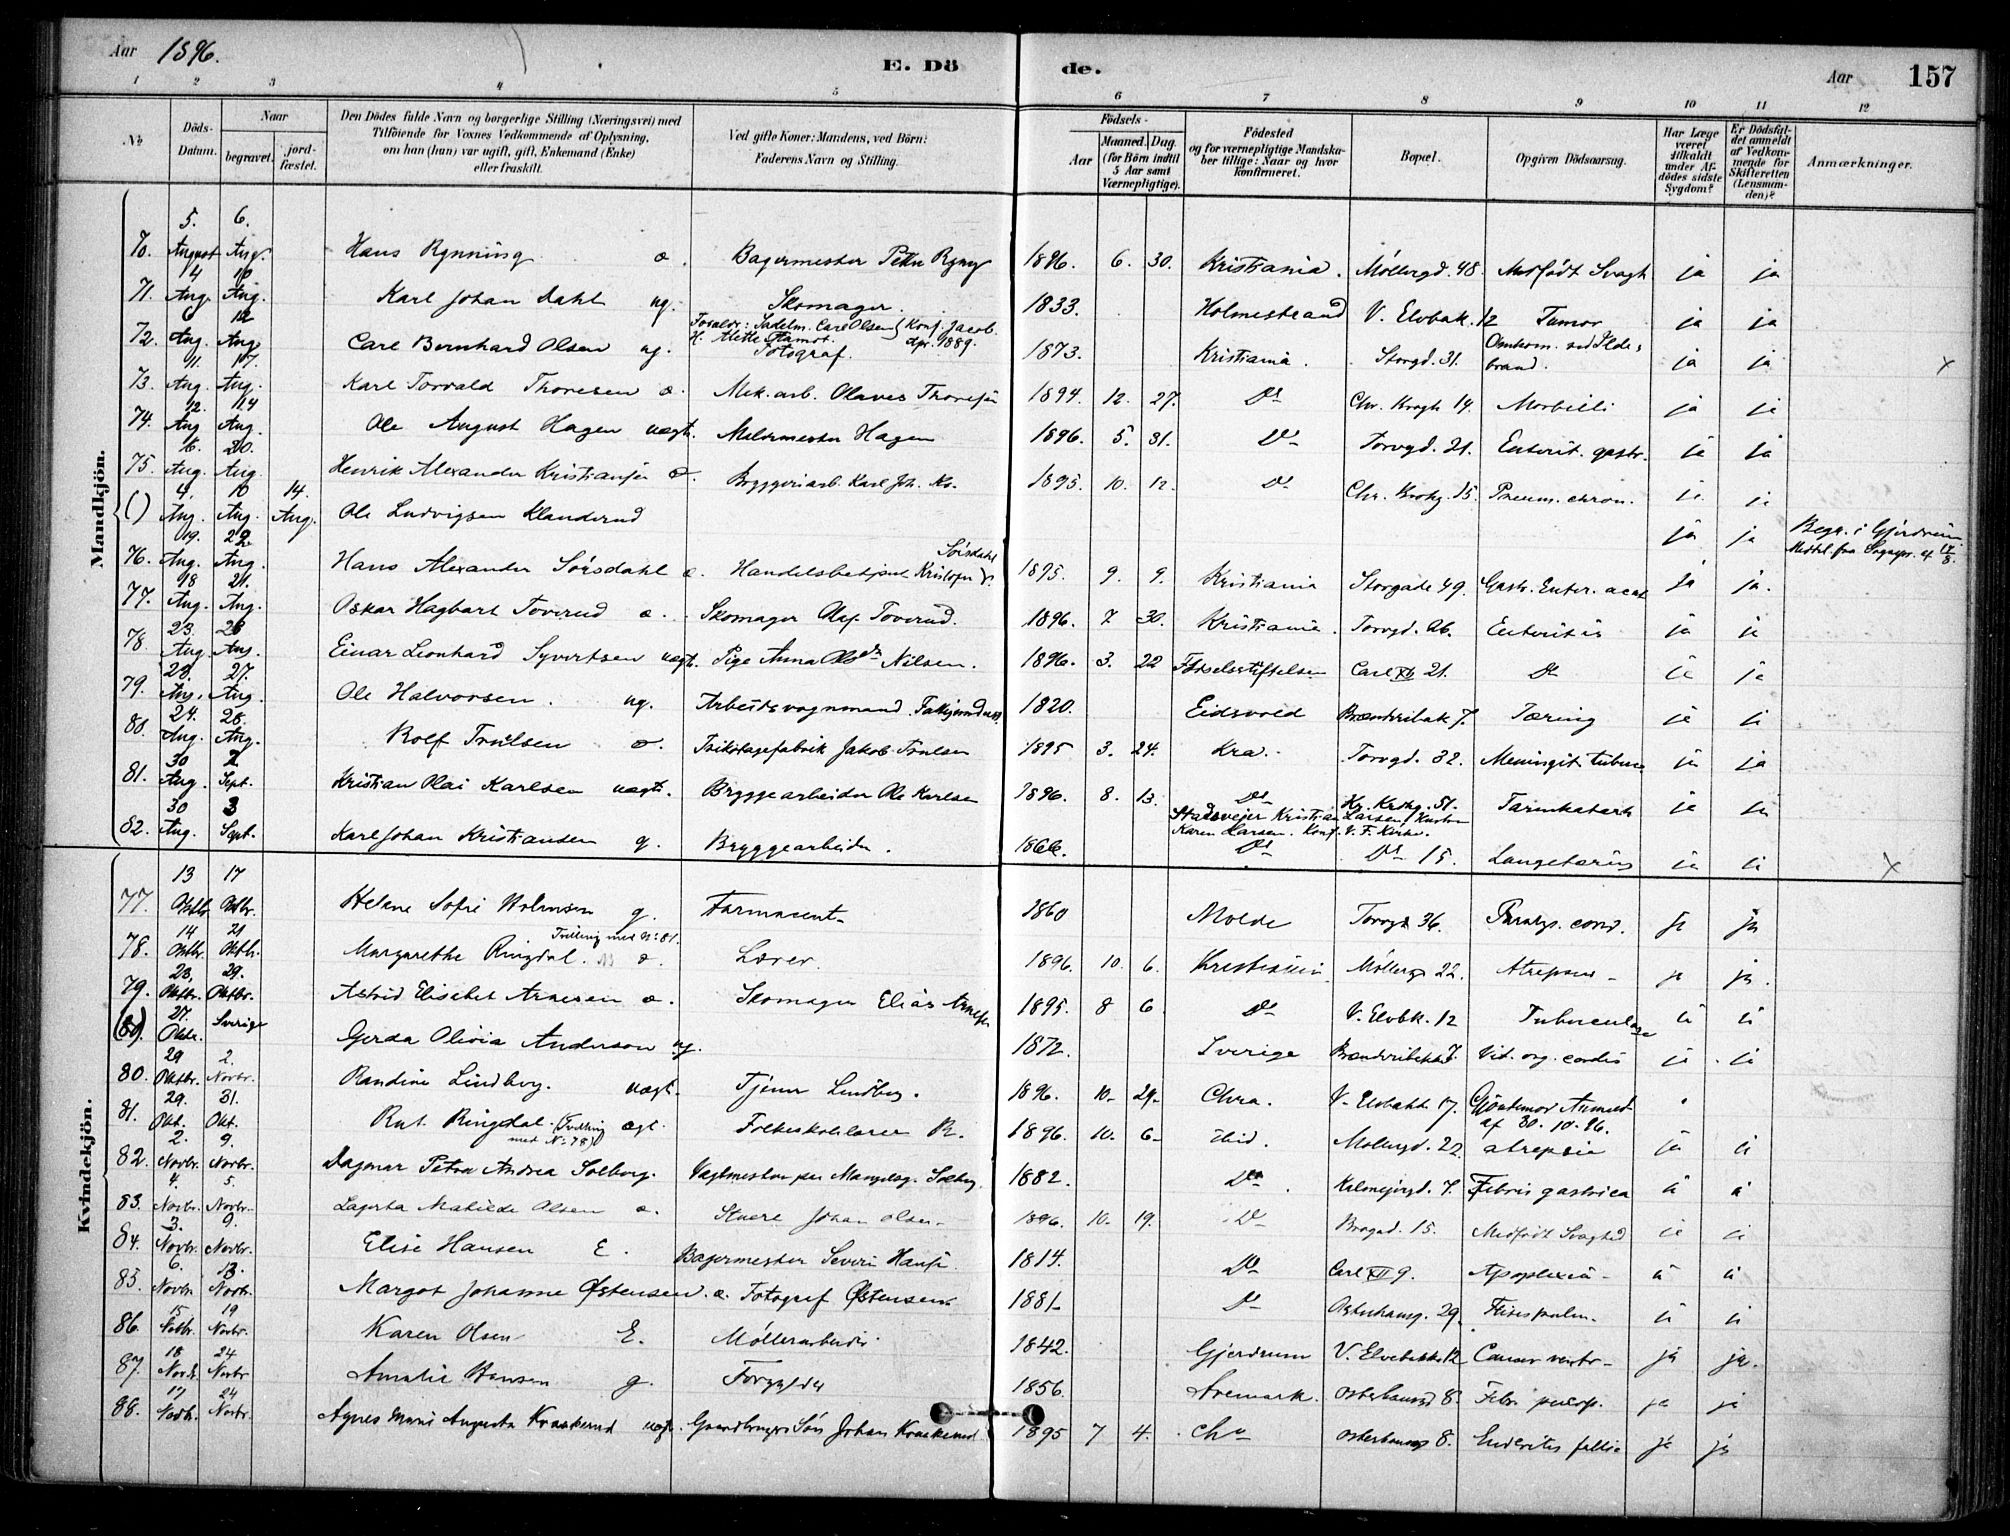 Aar 1896. E. Döde. Aar 157
1 2 3 4 5 6 7 8 9 10 11 12
No. Döds-Datum. Naar begravet. jord-fæstet. Den Dödes fulde Navn og borgerlige Stilling (Næringsvei) med Tilföiende for Voxnes Vedkommende af Oplysning, om han (hun) var ugift, gift, Enkemand (Enke) eller fraskilt. Ved gifte Koner: Mandens, ved Börn: Faderens Navn og Stilling. Födsels- Aar Maaned. Dag. (for Börn indtil 5 Aar samt Værnepligtige). Födested og for værnepligtige Mandska-ber tillige: Naar og hvor konfirmeret. Bopæl. Opgiven Dödsaarsag. Har Læge været tilkaldt under Af-dödes sidste Sygdom? Er Dödsfal-det anmeldt af Vedkom-mende for Skifteretten (Lensman-den)? Anmærkninger.
Mandkjön.
70. 5. August 6. Aug. Hans Rynning æ. Bagermester Petter Rynng 1896. 6. 30. Kristiania. Møllergd. 48. Medfödt Svagh. ja ja
71. 4 Aug. 10 Aug. Karl Johan Dahl ug. Skomager 1833. Holmestrand V. Elvbak. 12 Tumor ja ja
72. 6 Aug. 12 Aug. Carl Bernhard Olsen ug. Forældr: Sadelm. Carl Olsen Konf. Jacob. Apr. 1889. Fotograf. 1873. Kristiania. Storgd. 31. Omkom. ved Ildsbrand. ja ja x
73. 11. Aug. 17. Aug. Karl Torvald Thoresen æ. Mek. arb. Olaves Thoresen 1894. 12. 27. Do Chr. Krogh 14. Morbilli ja ja
74. 12. Aug 14 Aug. Ole August Hagen uægt. Malermester Hagen 1896. 5. 31. Do Torvgd. 21. Enterit. gastr. ja ja
75. 16. Aug. 20. Aug. Henrik Alexander Kristiansen æ. Bryggeriarb Karl Joh. Ks. 1895. 10. 12. Do Chr. Krohg. 15. Pneum. chron. ja ja
( ) 4. Aug. 10 Aug. 14. Aug. Ole Ludvigsen Klanderud ja ja Begr. i Gjerdrum Meddel. fra Sognepr. 17/8.
76. 19. Aug. 22 Aug. Hans Alexander Sørsdahl æ. Handelsbetjent Kristofer V. Sørsdahl 1895. 9. 9. Kristiania Storgade 49. Gastr. Enter. acut ja ja.
77. 18 Aug. 21. Aug. Oskar Hagbart Toverud æ. Skomager Olaf Toverud. 1896. 7 30. Kristiania. Torvgd. 26. Enteritis ja ja
78. 23. Aug. 26 Aug. Einar Leonhard Syvertsen uægt. Pige Anna Nilsen. 1896. 3. 22 Fødselsstiftelsen Carl XII 21. Do ja ja
79. 23. Aug. 27. Aug. Ole Halvorsen ug. Arbeidsvognmand. 1820. Eidsvold Brænderibak 7. Tæring ja ja
80. 24. Aug. 28. Aug. Rolf Trulsen æ. Trikotagefabrik Jakob Trulsen 1895 3. 24. Kra. Torvgd. 32. Meningit. tuberc. ja ja
81. 30 Aug. 2 Sept. Kristian Olai Karlsen uægt. Bryggearbeider Ole Karlsen 1896. 8. 13. Do Kr. Krohg. 51. Tarmkatarh ja ja
82. 30 Aug. 3 Sept. Karl Johan Kristiansen g. Bryggearbeider. 1866. Stadsveier Kristian Larsen Hustru Karen Larsen. Konf. V. F. Kirke. Do Do 15. Lungetæring ja ja x
Kvindekjön.
77. 13 Oktbr. 17 Oktbr. Helene Sofie Holmsen g. Farmaceut 1860 Molde Torvgt 36. Paralys. cord. ja ja
78. 14 Oktbr. 21 Oktbr. Margarethe Ringdal. æ. Tvilling med No: 81. Lærer. 1896. 10. 6. Kristiania Møllerg. 22. Atrepsia ja ja.
79. 23. Oktbr. 29. Oktbr. Astrid Elisabet Arnesen æ. Skomager Elias Arnesen 1895. 8 6 Do V. Elvbk. 12 Tuberculose ja ja
(80). 27. Oktbr. Sverige Gerda Olivia Anderson ug. 1872. Sverige Brænderibakk 7. Vit. org. cordis ja ja
80. 29 Oktbr. 2. Novbr. Randine Lindberg. uægt. Tjener Lindberg. 1896. 10. 29. Chra. V. Elvbakk 17. Gjordemor Anmeld af 30. 10. 96.
81. 29. Okt. 31. Okt. Rut Ringdal (Tvilling med No: 78) ægt. Folkeskolelærer R. 1896. 10. 6. Ibid. Møllergd. 22. atrepsie ja ja
82. 2. Novbr. 9. Novbr. Dagmar Petra Andrea Solberg. Vagtmester Solberg 1882. Do. Kalmejergd. 7. Febris gastrica ja ja
83. 4. Novbr. 5. Novbr. Lagerta Matilde Olsen æ. Stuer Johan Olsen 1896. 10. 19. Do Brogad. 15. Medfödt Svaghed ja ja
84. 3. Novbr. 9. Novbr. Elise Hansen E. Bagermester Severin Hansen 1814. Do Carl XII 9. Apoplexia ja ja
85. 6. Novbr. 13. Novbr. Margot Johanne Østensen æ. Fotograf Østensen 1881 Do Osterhausg. 29. Ftisis pulm. ja ja
86. 15 Novbr. 19 Novbr. Karen Olsen E. Møllerarbeider 1842. Gjerdrum V. Elvebakke 12 Cancer ventr. ja ja.
87. 18 Novbr. 24 Novbr Amalie Hansen g. Forgylder 1856. Aremark. Osterhausgd 8. Febr. puerp. ja ja
88. 17 Novbr. 24 Novbr. Agnes Marie Augusta Kraakerud uægt. Gaardbruger Søn Johan Kraakerud 1895 7 4. Chra Osterhausg 8. Enteritis follic ja ja